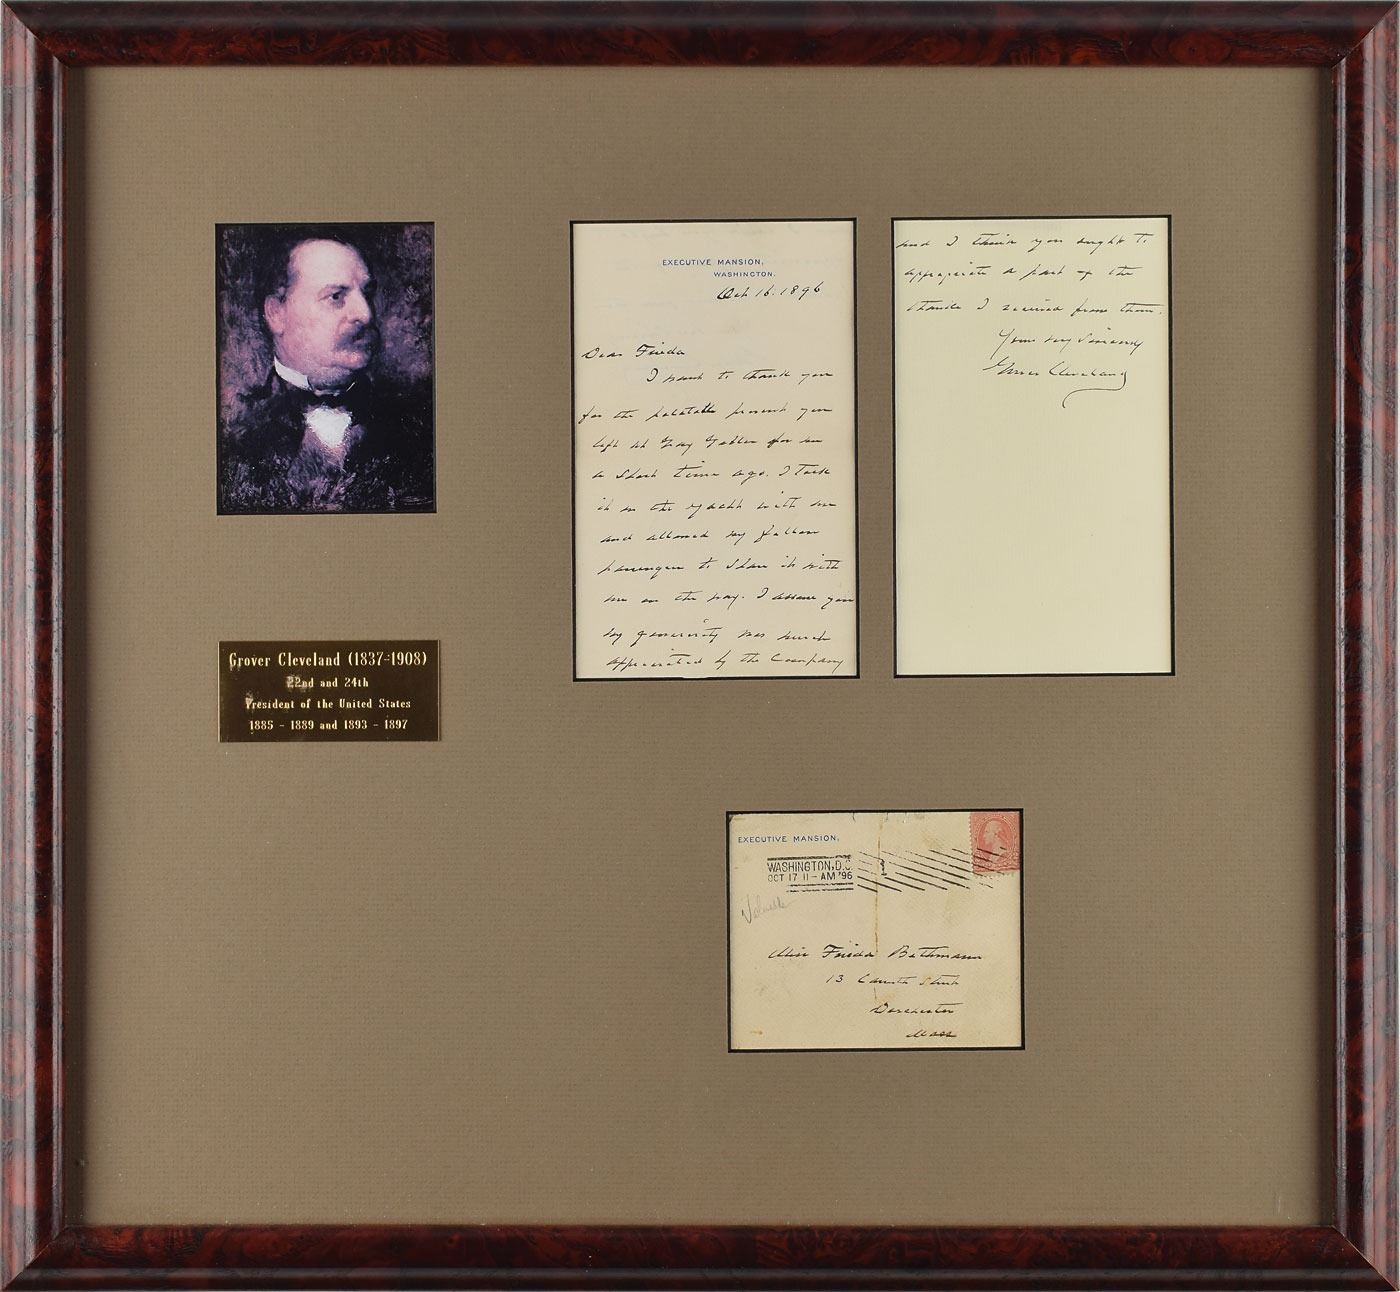 EXECUTIVE MANSION,
WASHINGTON.
Oct 16. 1896
Dear Frieda
I want to thank you
for the palatable present you
left at Gray Gables for me
a short time ago. I took
it on the yacht with me
and allowed my fellow
passengers to share it with
me on the way. I assure you
my generosity was much
appreciated by the Company
and I think you ought to
appropriate a part of the
thanks I received from them.
Yours very sincerely
Grover Cleveland
Grover Cleveland (1837-1908)
22nd and 24th
President of the United States
1885 - 1889 and 1893 - 1897
EXECUTIVE MANSION,
WASHINGTON, D.C.
OCT 17 11-AM '96
Valuable
Miss Frieda Bethmann
13 Street
Dorchester
Mass